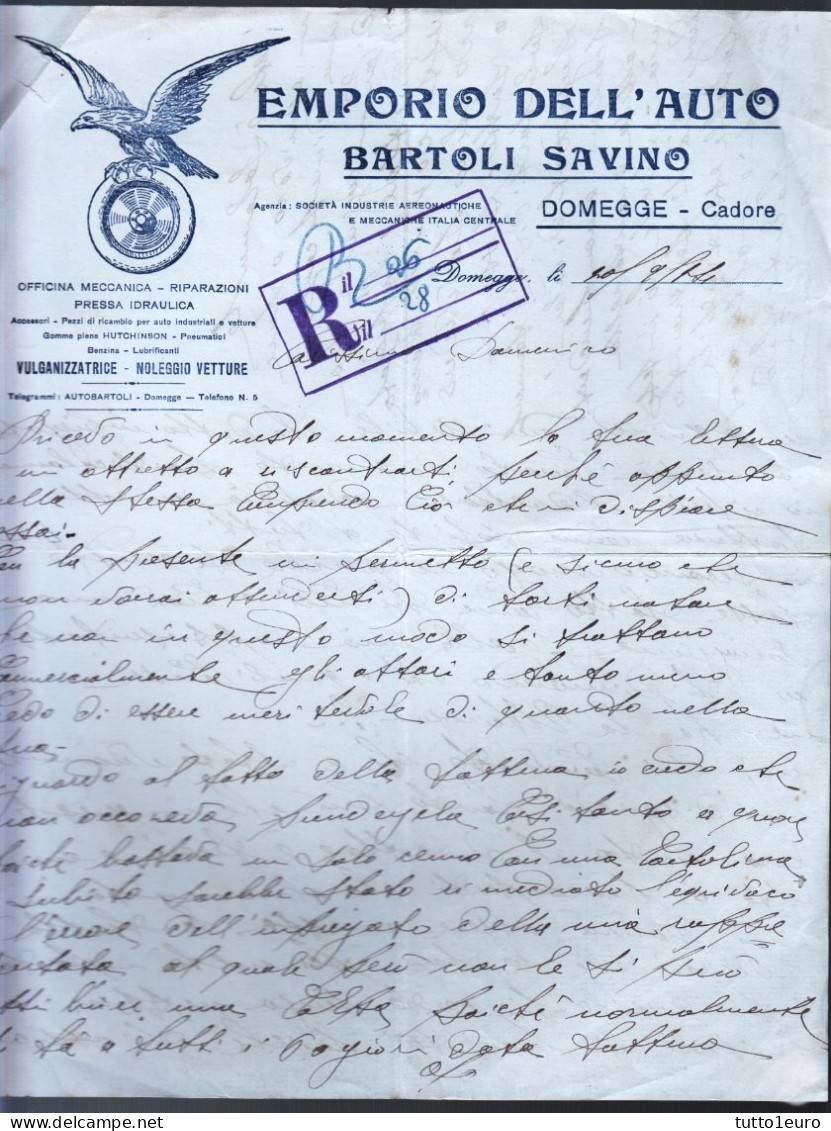 EMPORIO DELL'AUTO
BARTOLI SAVINO
Agenzia: SOCIETÀ INDUSTRIE AERONAUTICHE
E MECCANICHE ITALIA CENTRALE
DOMEGGE - Cadore
OFFICINA MECCANICA - RIPARAZIONI
PRESSA IDRAULICA
Accessori - Pezzi di ricambio per auto industriali e vetture
Gomme piene HUTCHINSON - Pneumatici
Benzina - Lubrificanti
VULGANIZZATRICE - NOLEGGIO VETTURE
Telegrammi: AUTOBARTOLI - Domegge - Telefono N. 5
R il 26
28
Domegge, li
Carissimo Domenico
Ricevo in questo momento la tua lettera
mi affretto a riscontrarti, perchè appunto
nella stessa ciò che mi dispiace
assai.
la presente mi permetto (e sicuro che
non vorrai offenderti) di farti notare
che non in questo modo si trattano
commercialmente gli affari e tanto meno
credo di essere meritevole di quanto nella
tua.
al fatto della fattura io credo che
non occoreva tanto
bastava un solo cenno con una cartolina
subito sarebbe stato rimediato l'equivoco
l'errore dell'impiegato della mia rappre
sentata al quale però non le si può
una colpa poichè normalmente
fa a tutti i data fattura
tutto1euro